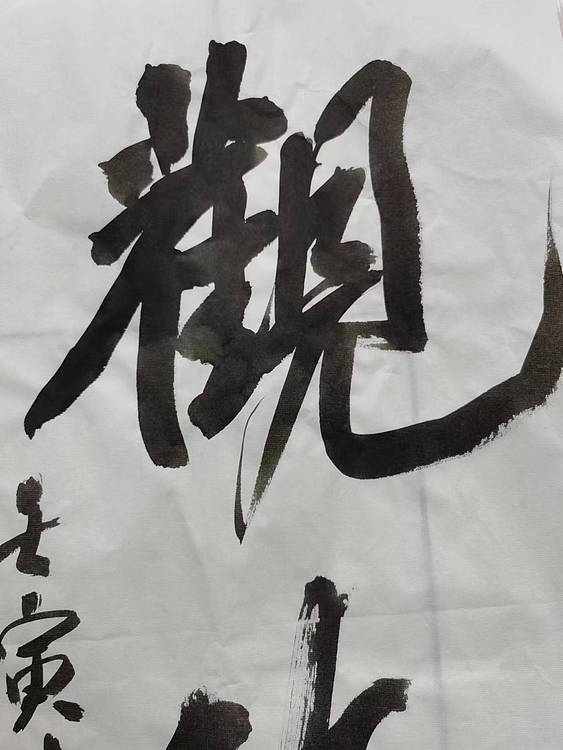 觀
壬寅